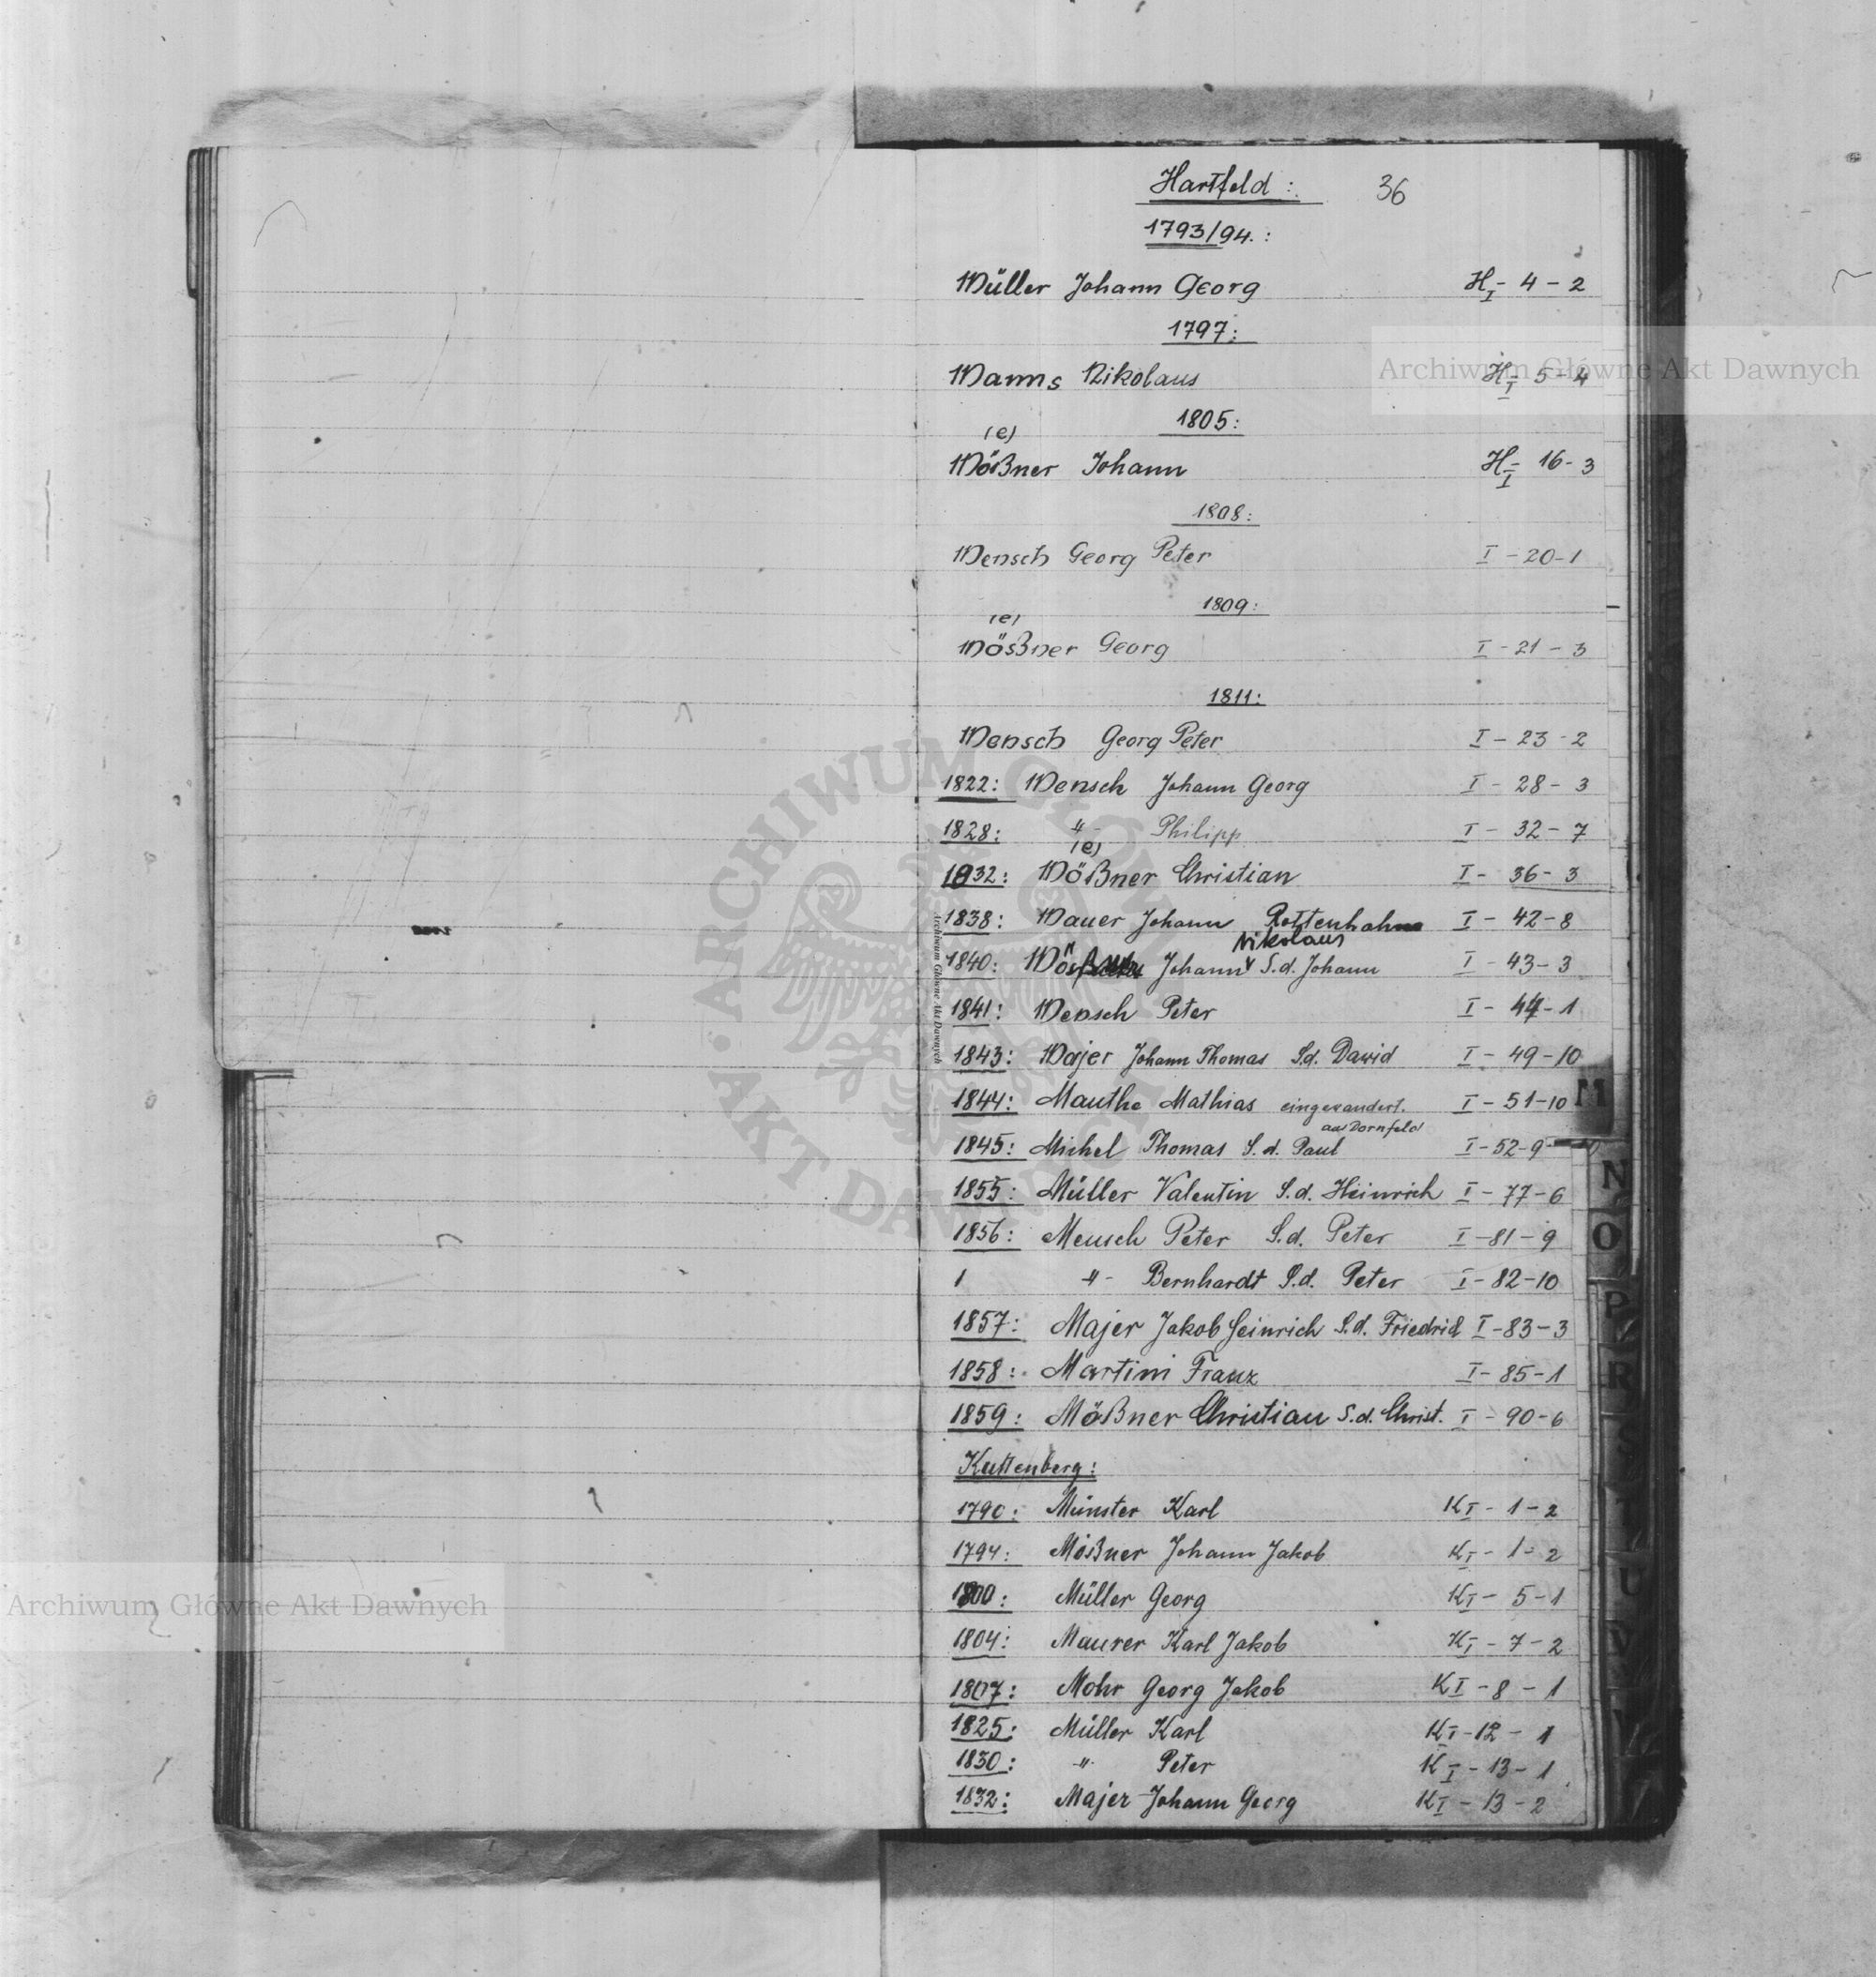 Hartfeld : 36
1793/94. :
Müller Johann Georg H I - 4 - 2
1797 :
Manns Nikolaus H I - 5 - 4
1805 :
(e)
Mößner Johann H I - 16 - 3
1808 :
Mensch Georg Peter I - 20 - 1
1809 :
(e)
Mößner Georg I - 21 - 3
1811 :
Mensch Georg Peter I - 23 - 2
1822 : Mensch Johann Georg I - 28 - 3
1828 : -"- Philipp I - 32 - 7
(e)
1832 : Mößner Christian I - 36 - 3
1838 : Mauer Johann Rottenhahn I - 42 - 8
Nikolaus
1840 : Johann S.d. Johann I - 43 - 3
1841 : Mensch Peter I - 44 - 1
1843 : Majer Johann Thomas S.d. Dawid I - 49 - 10
1844 : Mauthe Mathias eingewandert. I - 51 - 10
aus Dornfeld
1845 : Michel Thomas S.d. Paul I - 52 - 9
1855 : Müller Valentin S.d. Heinrich I - 77 - 6
1856 : Mensch Peter S.d. Peter I - 81 - 9
-"- Bernhardt S.d. Peter I - 82 - 10
1857 : Majer Jakob Heinrich S.d. Friedrich I - 83 - 3
1858 : Martini Franz I - 85 - 1
1859 : Mößner Christian S.d. Christ. I - 90 - 6
Kuttenberg :
1790 : Münster Karl K I - 1 - 2
1794 : Mößner Johann Jakob K I - 1 - 2
1800 : Müller Georg K I - 5 - 1
1804 : Maurer Karl Jakob K I - 7 - 2
1807 : Mohr Georg Jakob K I - 8 - 1
1825 : Müller Karl K I - 12 - 1
1830 : -"- Peter K I - 13 - 1
1832 : Majer Johann Georg K I - 13 - 2
M
N
O
P
R
S
U
V
Archiwum Główne Akt Dawnych
Archiwum Główne Akt Dawnych
Archiwum Główne Akt Dawnych
ARCHIWUM GŁÓWNE AKT DAWNYCH